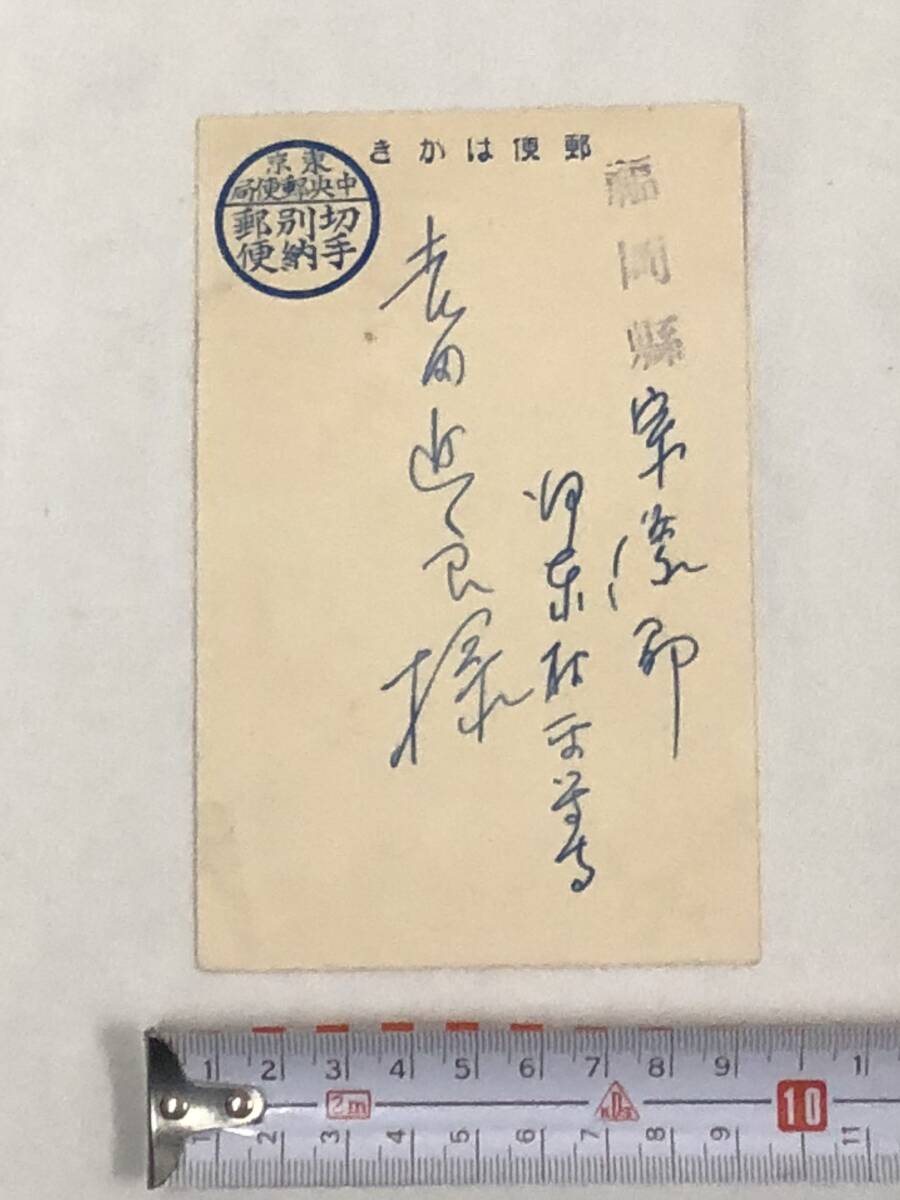 郵便はかき
東京
中央郵便局
切手
別納
郵便
福岡縣宗像郡
河東村平等寺
田近良様
1 2 3 4 5 6 7 8 9 10 1
2m KDS
1 2 3 4 5 6 7 8 9 11